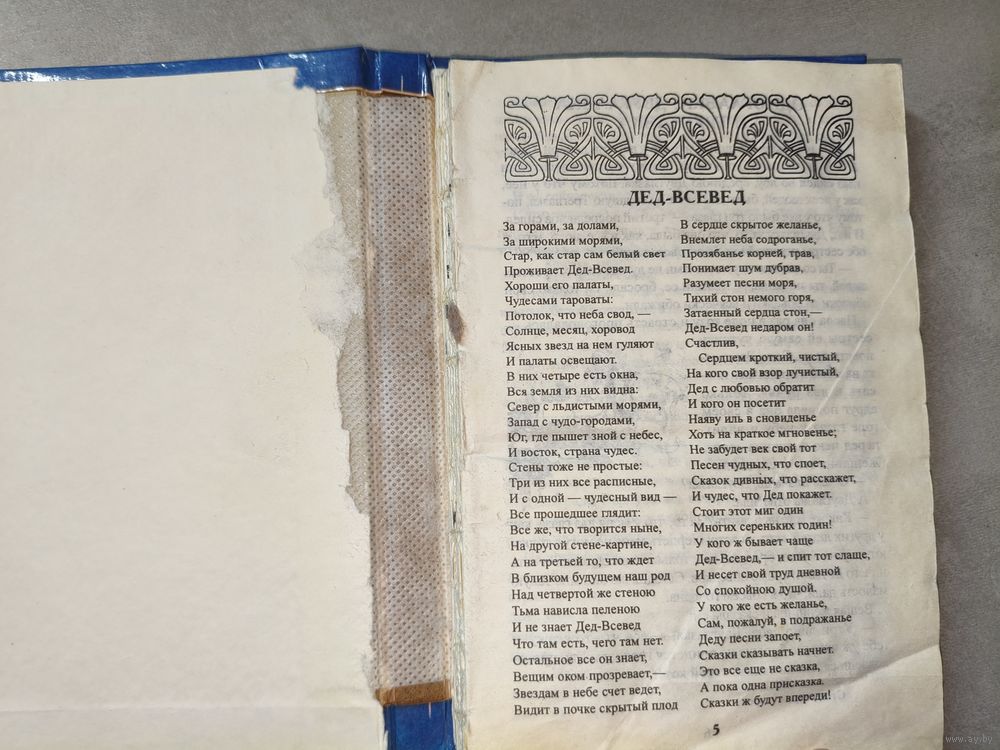 ДЕД-ВСЕВЕД
За горами, за долами,
За широкими морями,
Стар, как стар сам белый свет
Проживает Дед-Всевед.
Хороши его палаты,
Чудесами тароваты:
Потолок, что неба свод, —
Солнце, месяц, хоровод
Ясных звезд на нем гуляют
И палаты освещают.
В них четыре есть окна,
Вся земля из них видна:
Север с льдистыми морями,
Запад с чудо-городами,
Юг, где пышет зной с небес,
И восток, страна чудес.
Стены тоже не простые:
Три из них все расписные,
И с одной — чудесный вид —
Все прошедшее глядит:
Все же, что творится ныне,
На другой стене-картине,
А на третьей то, что ждет
В близком будущем наш род
Над четвертой же стеною
Тьма нависла пеленою
И не знает Дед-Всевед
Что там есть, чего там нет.
Остальное все он знает,
Вещим оком прозревает,—
Звездам в небе счет ведет,
Видит в почке скрытый плод
В сердце скрытое желанье,
Внемлет неба содроганье,
Прозябанье корней, трав,
Понимает шум дубрав,
Разумеет песни моря,
Тихий стон немого горя,
Затаенный сердца стон,—
Дед-Всевед недаром он!
Счастлив,
Сердцем кроткий, чистый,
На кого свой взор лучистый,
Дед с любовью обратит
И кого он посетит
Наяву иль в сновиденье
Хоть на краткое мгновенье;
Не забудет век свой тот
Песен чудных, что споет,
Сказок дивных, что расскажет,
И чудес, что Дед покажет.
Стоит этот миг один
Многих сереньких годин!
У кого ж бывает чаще
Дед-Всевед,— и спит тот слаще,
И несет свой труд дневной
Со спокойною душой.
У кого же есть желанье,
Сам, пожалуй, в подражанье
Деду песни запоет,
Сказки сказывать начнет.
Это все еще не сказка,
А пока одна присказка.
Сказки ж будут впереди!
5
www.ay.by